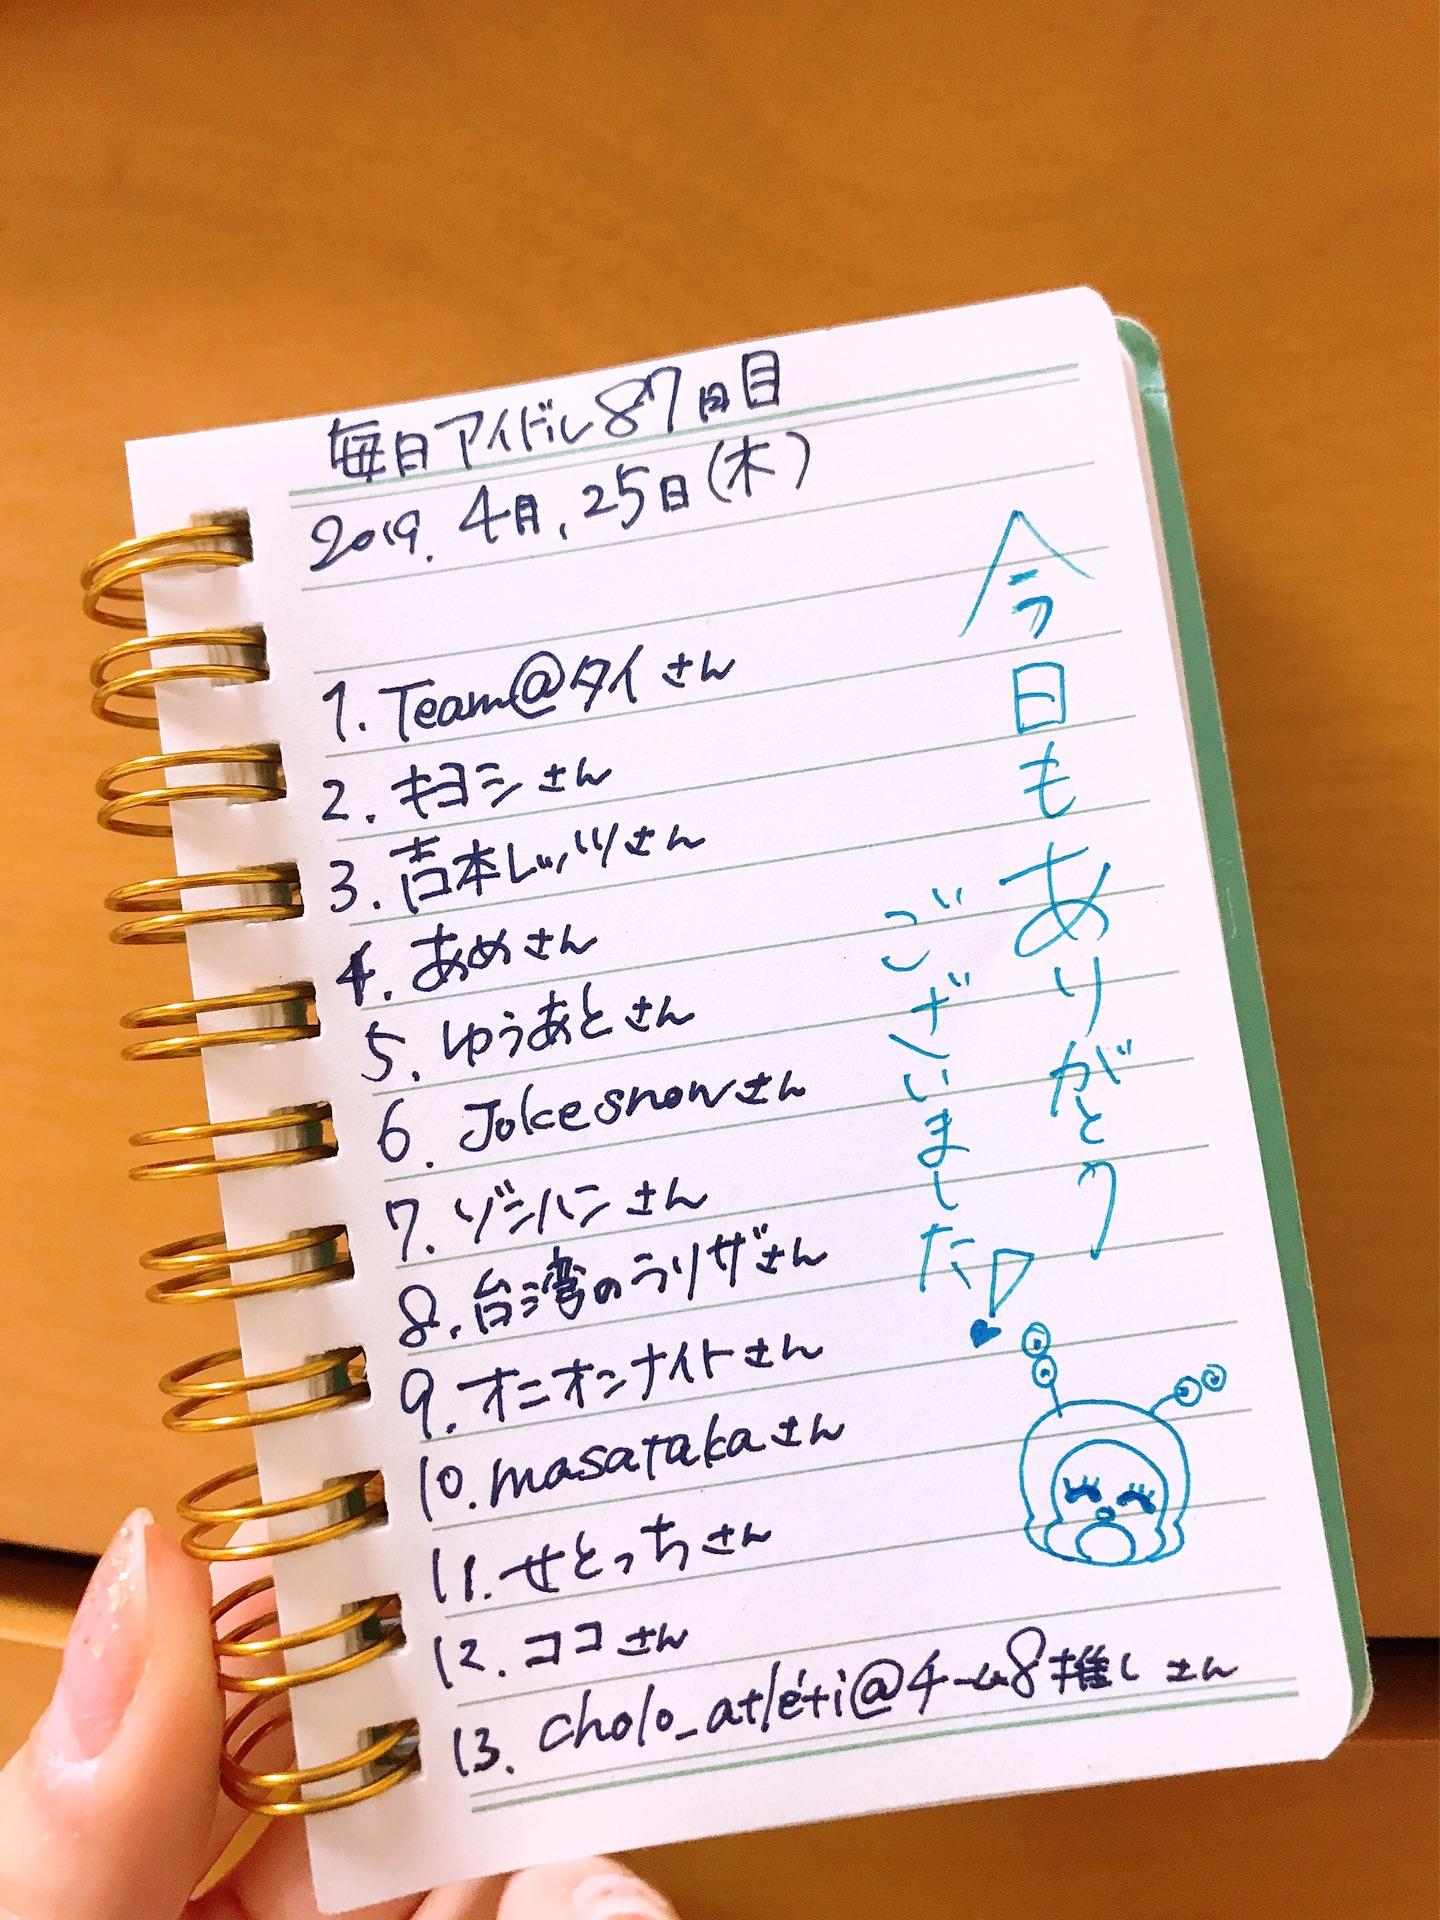 毎日アイドル87日目
2019.4月.25日(木)
1.Team@タイさん
2.キヨシさん
3.吉本レッツさん
4.あめさん
5.ゆうあとさん
6.Jokesnowさん
7.ゾンハンさん
8.台湾のうりザさん
9.オニオンナイトさん
10.masatakaさん
11.せとっちさん
12.ココさん
13.cholo_atléti@チーム8推しさん
今日もありがとう
ございました